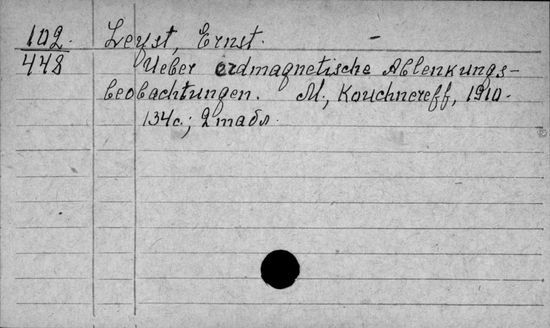 102. Leyst, Ernst. –
448 Ueber erdmagnetische Ablenkungs-
beobachtungen. М., Kouchnereff, 1910.
134с.; 2 табл.